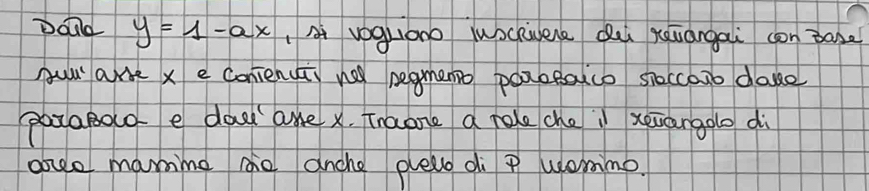 Data y = 1 - ax, si vogliono inscrivere dei rettangoli con base
sull'asse x e contenuti nel segmento parabolico staccato dalla
parabola e dall'asse x. Trovare a tale che il rettangolo di
area massima sia anche quello di P massimo.